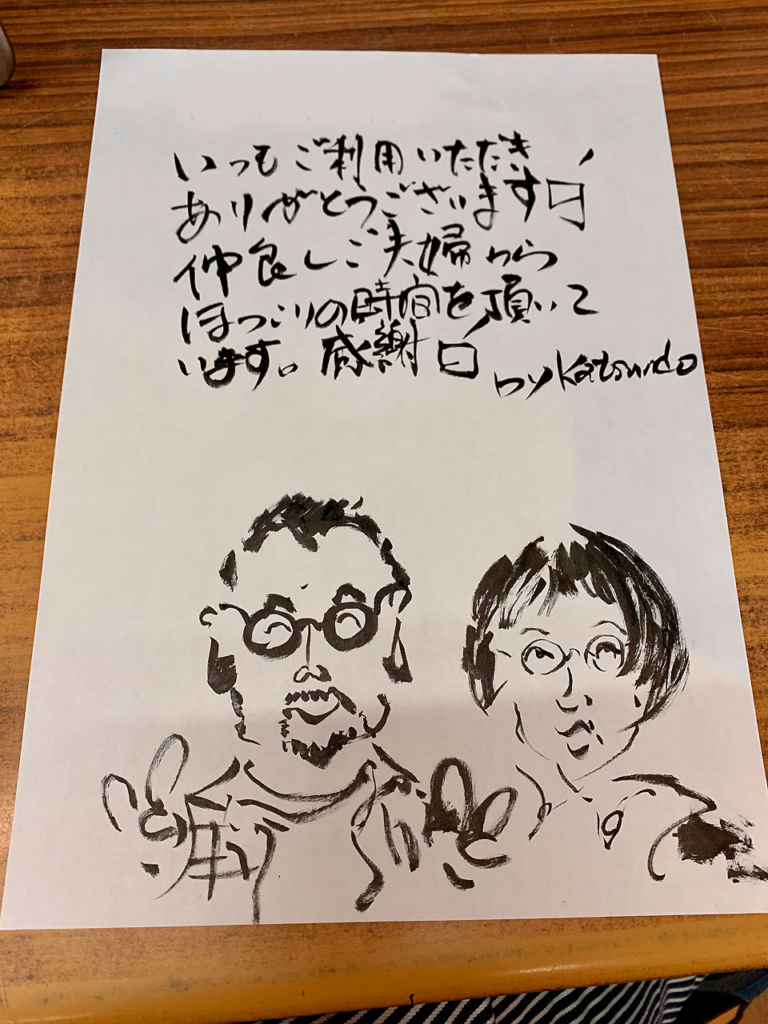 いつもご利用いただき
ありがとうございます!
仲良しご夫婦から
ほっこりの時間を頂いて
います。感謝!
by Katsundo